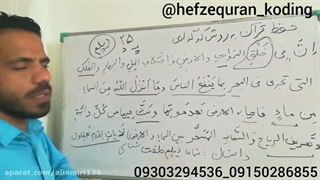 @hefzequran_koding
حفظ قرآن به روش کدگذاری
إنَّ فی خَلقِ السَّمٰوٰتِ والارضِ واختلافِ اللیلِ والنَّهارِ والفُلکِ
التی تَجری فی البحرِ بما یَنفَعُ الناسَ وَما أنزَلَ اللهُ مِنَ السَّماءِ
مِن ماءٍ فاحیا بهِ الارضَ بَعدَ موتِها وَبَثَّ فیها مِن کُلِّ دابَّةٍ
وتَصریفِ الرِّیاحِ والسَّحابِ المُسَخَّرِ بینَ السماءِ والارضِ لَآیاتٍ لِقومٍ یَعقِلون
داستان:
aparat.com/aliamiri136
09303294536_09150286855